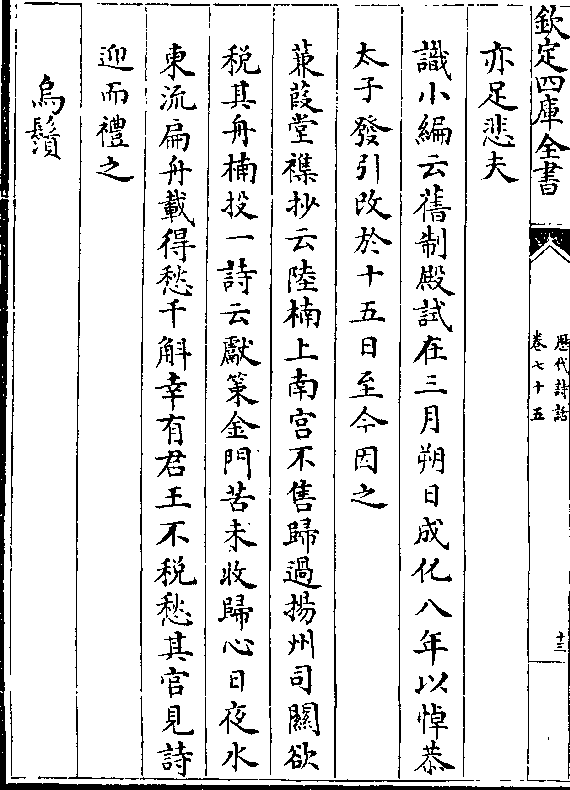 欽定四庫全書
歴代詩話
卷七十五
十三
亦足悲夫
識小編云舊制殿試在三月朔日成化八年以悼恭
太子發引改於十五日至今因之
蒹葭堂襍抄云陸楠上南宫不售歸過揚州司關欲
税其舟楠投一詩云獻策金門苦未收歸心日夜水
東流扁舟載得愁千斛幸有君王不税愁其官見詩
迎而禮之
烏鬚